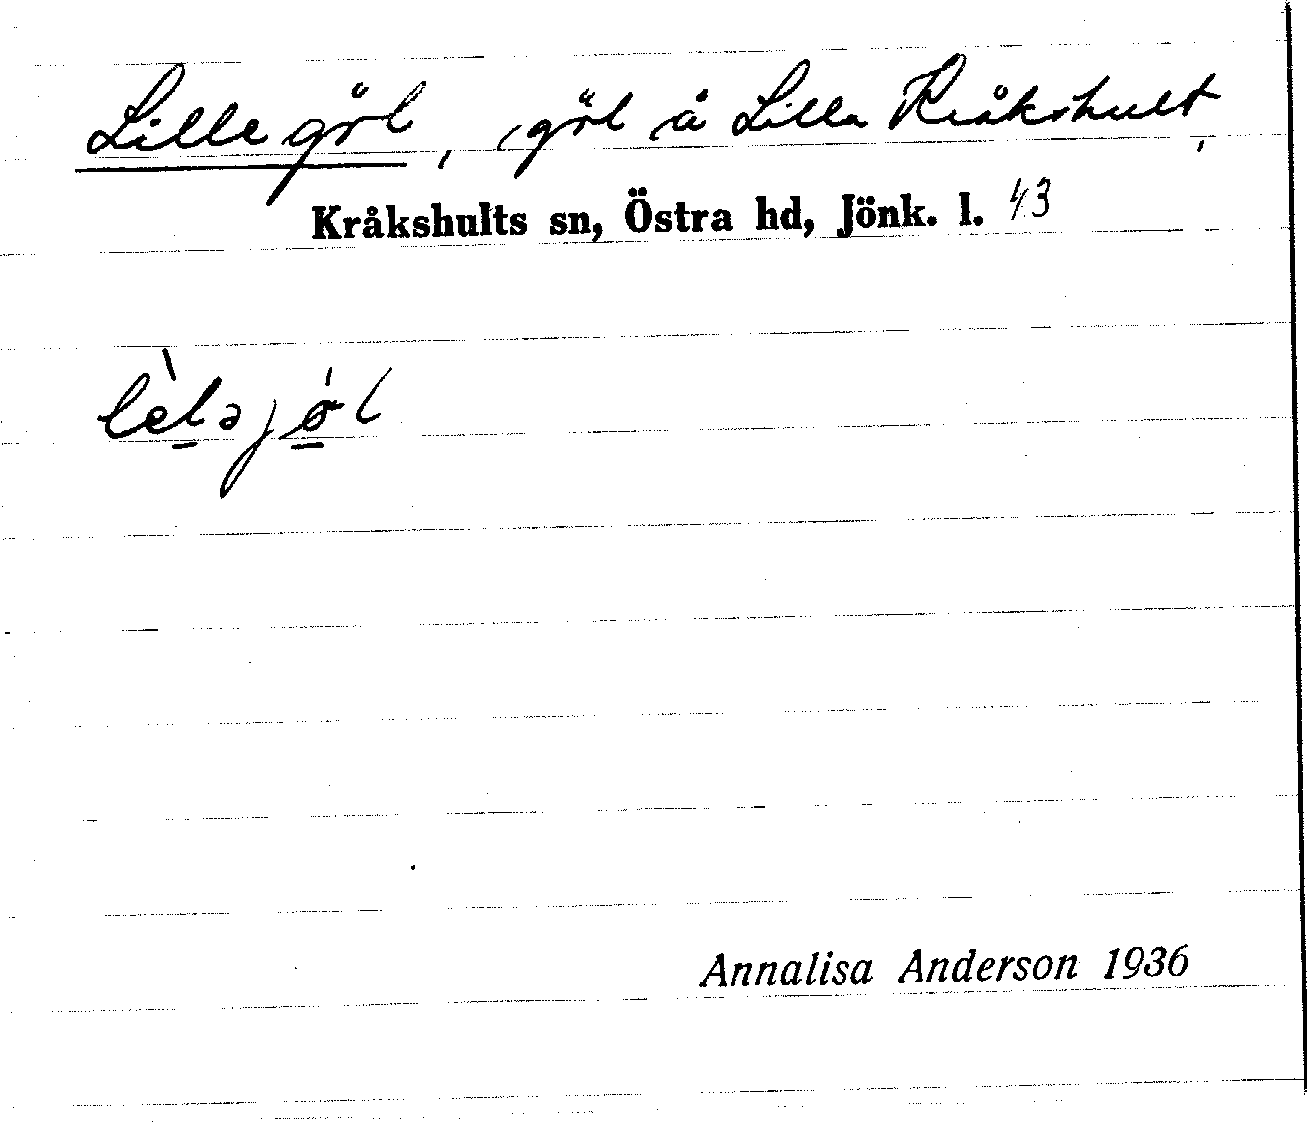 Lille göl, göl å Lilla Kråkshult,
Kråkshults sn, Östra hd, Jönk. l. 43
lèləjø̀l
Annalisa Anderson 1936